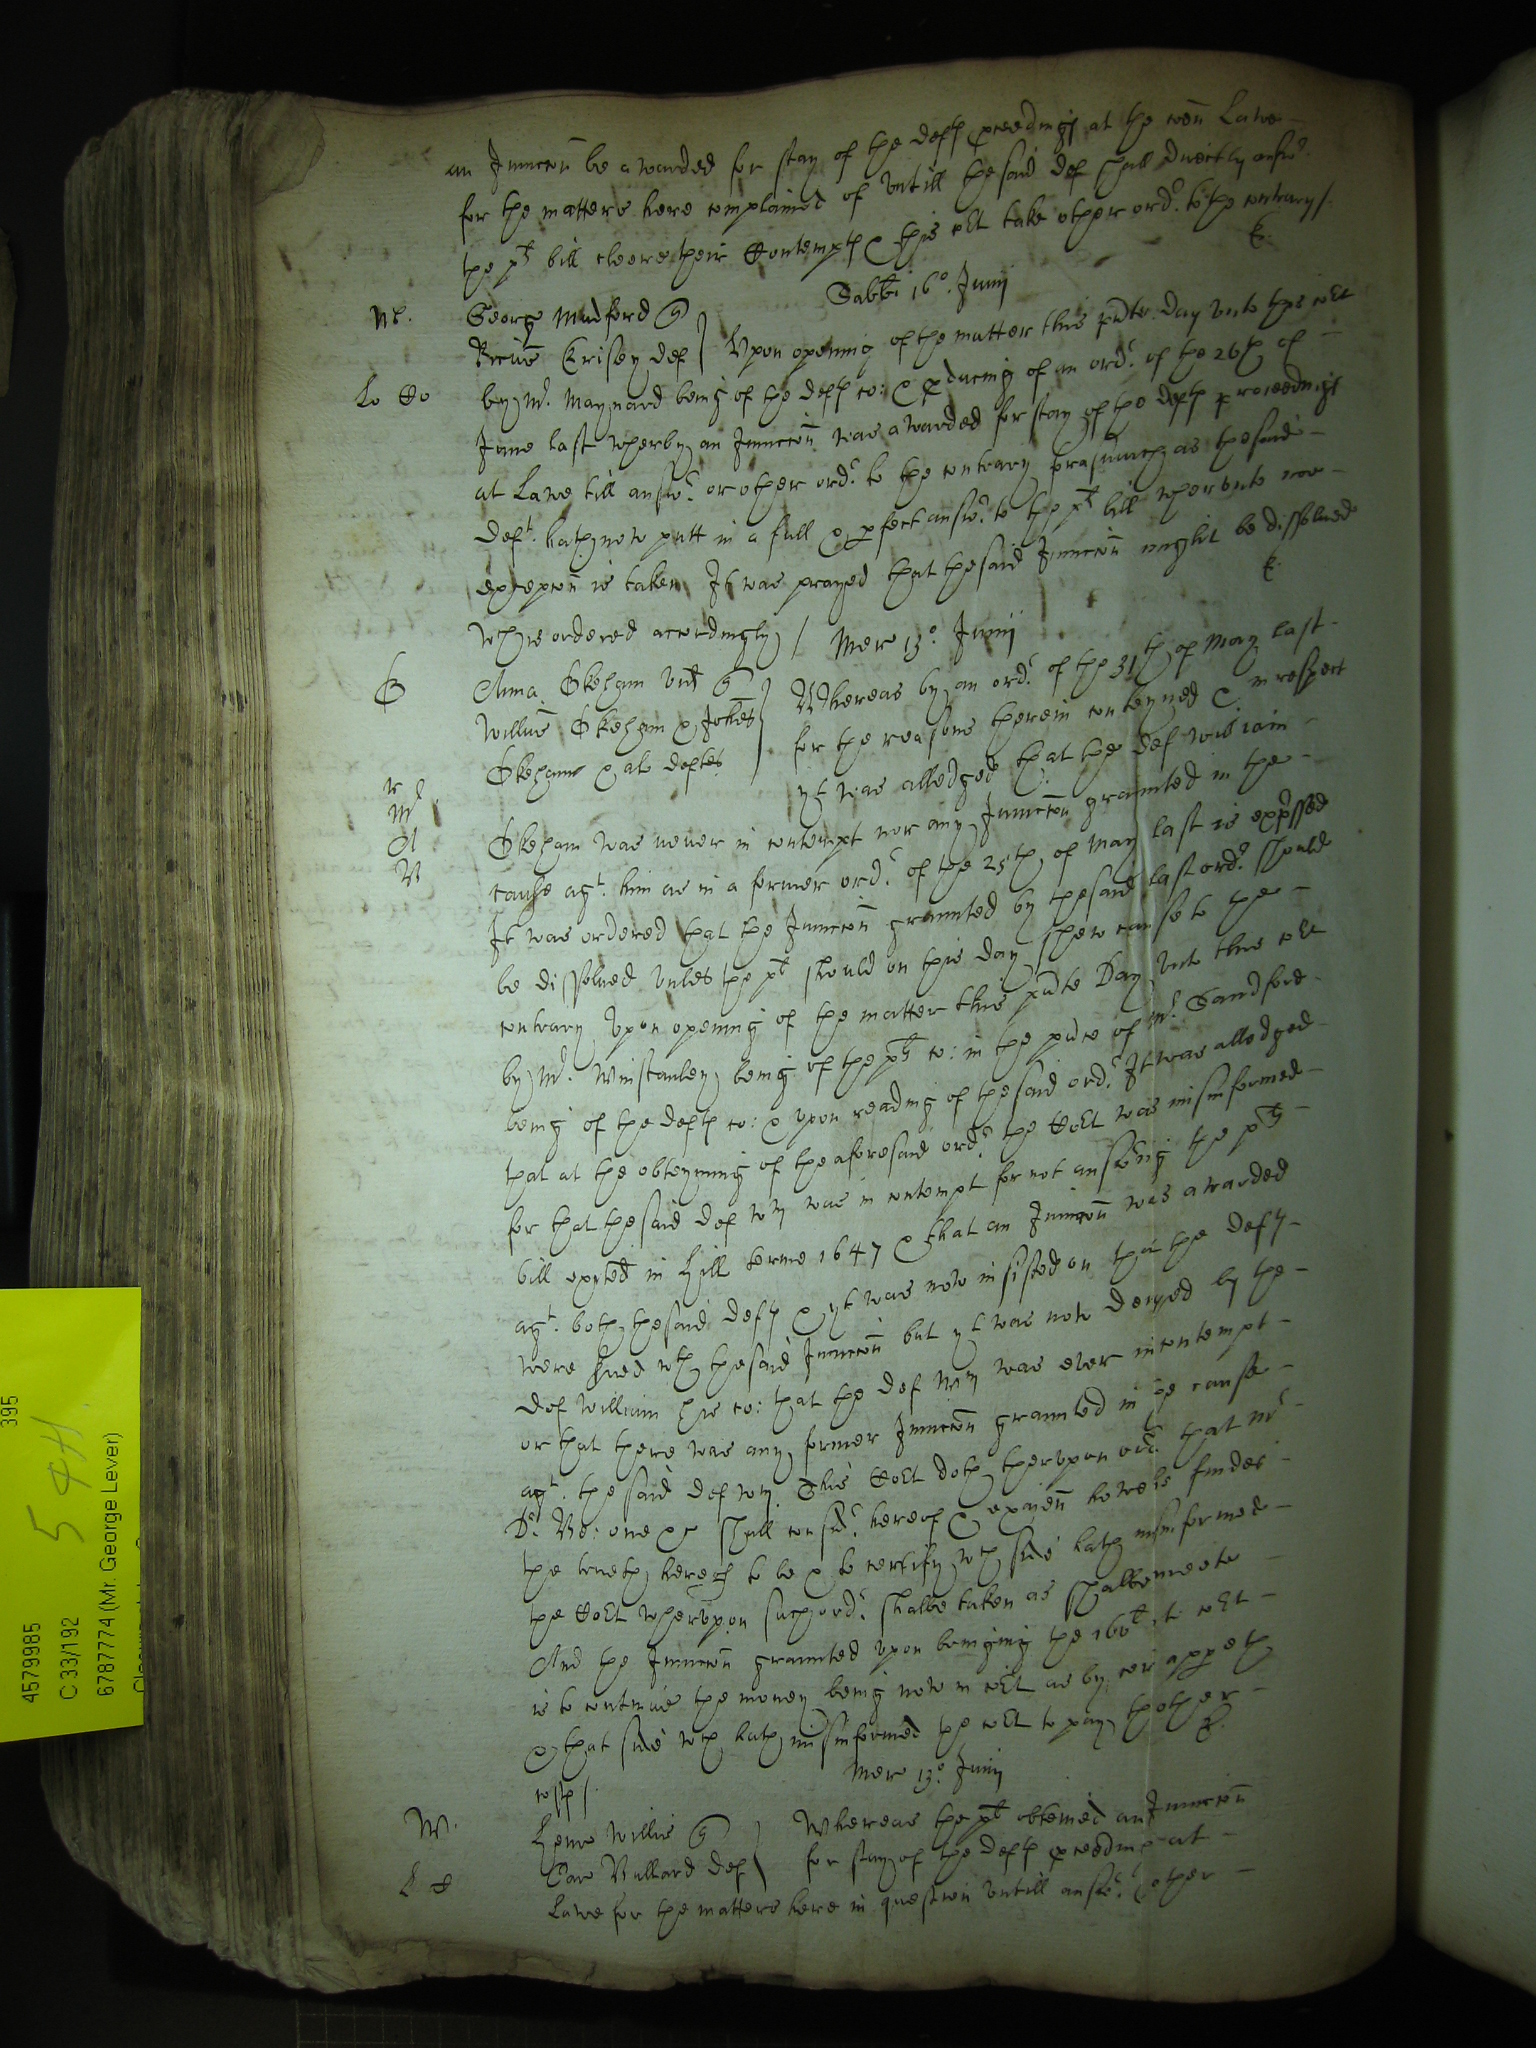 an Iniuncc̃on be awarded for stay of the defts p̱ceedings at the com̃ Lawe
for the matters here complained of Vntill the said def shall directly answ.r
the plts bill cleere their Contempts & this Co.rt take other ord.r to the contrary /.
Sabb̃i 16o. Junij
M.
George Mudford q
Erisey def } Vpon opening of the matter this p̃nte day vnto this co.rt
Lo Co
by Mr. Maynard being of the defts co: & p̱ducing of an ord.r of the 26th of
June last wherby an Iniuncc̃on was awarded for stay of the defts proceedings
at Lawe till answ.r or other ord.r to the contrary forasmuch as the said
Deft. hath now putt in a full & p̱fect answ.r to the plts bill wherunto noe
excepc̃on is taken It was prayed that the said Iniuncc̃on might be dissolued
wch is ordered accordingly / Mer 13o. Junij
Anna Okeham vid q
Willm̃s Okeham & Joh̃es
Okeham & al deftes } Whereas by an ord.r of the 31th of May last
for the reasons therein conteyned & in respect
yt was alledged that the def William
Okeham was neuer in contempt nor any Iniuncc̃on graunted in the
cause agt. him as in a former ord.r of the 25th of May last is exp̱ssed
It was ordered that the Iniuncc̃on graunted by the said last ord.r should
be dissolued vnles the plt should on this day shew cause to the
contrary Vpon opening of the matter this p̃nte Day vnto this co.rt
by Mr. Winstanley being of the plts co: in the p̃nce of Mr. Sandford
being of the defts co: & vpon reading of the said ord.r It was alledged
that at the obteyning of the aforesaid ord.r the Co.rt was misinformed
for that the said def Wm was in contempt for not answ.ring the plts
bill exhted in Hill terme 1647 & that an Iniuncc̃on was awarded
agt. both the said defts & yt was now insisted on that the defts
were serued wth the said Iniuncc̃on but yt was now denyed by the
def William his co: that the def Wm was euer in contempt
or that there was any former Iniuncc̃on graunted in the cause
agt. the said def Wm. This Co.rt doth therupon ord.r that Mr
Dr. : one &c shall consid.r hereof & explain how he findes
the trueth hereof to be & to certify wch side hath misinformed
the Co.rt wherupon such ord.r shalbe taken as shalbe meete
And the Iniuncc̃on graunted vpon bringing the 160l into co.rt
is to contynue the money being now in co.rt as by cer̃ appeth
& that side wch hath misinformed the co.rt to pay thother
costs /.
Mer 13o. Junij
W.
Willis q
Bullard def } Whereas the plt obteined an Iniuncc̃on
for stay of the defts p̱ceedings at
Lawe for the matters here in question vntill answ.r other
395
5th.
4579985
C 33/192
6787774 (Mr. George Lever)